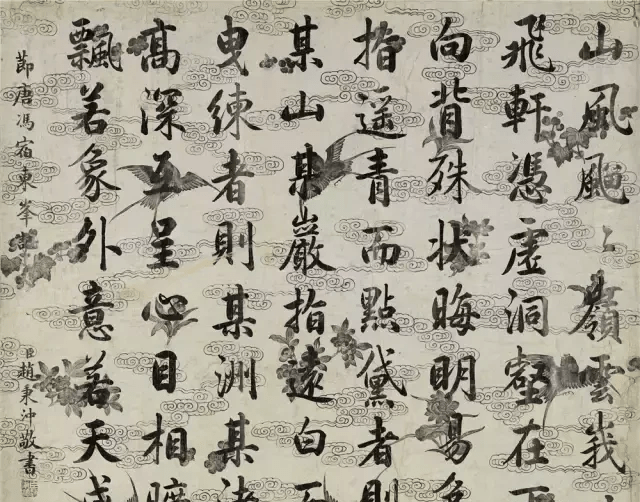 山風颸〻嶺雲峩
飛軒憑虛洞壑在下
向背殊狀晦明易
指遥青而點黛者則
某山某巖指遠白而
曳練者則某洲某渚
高深互呈心目相曠
飄若象外意若天成
節唐馮宿東峯
臣趙秉沖敬書